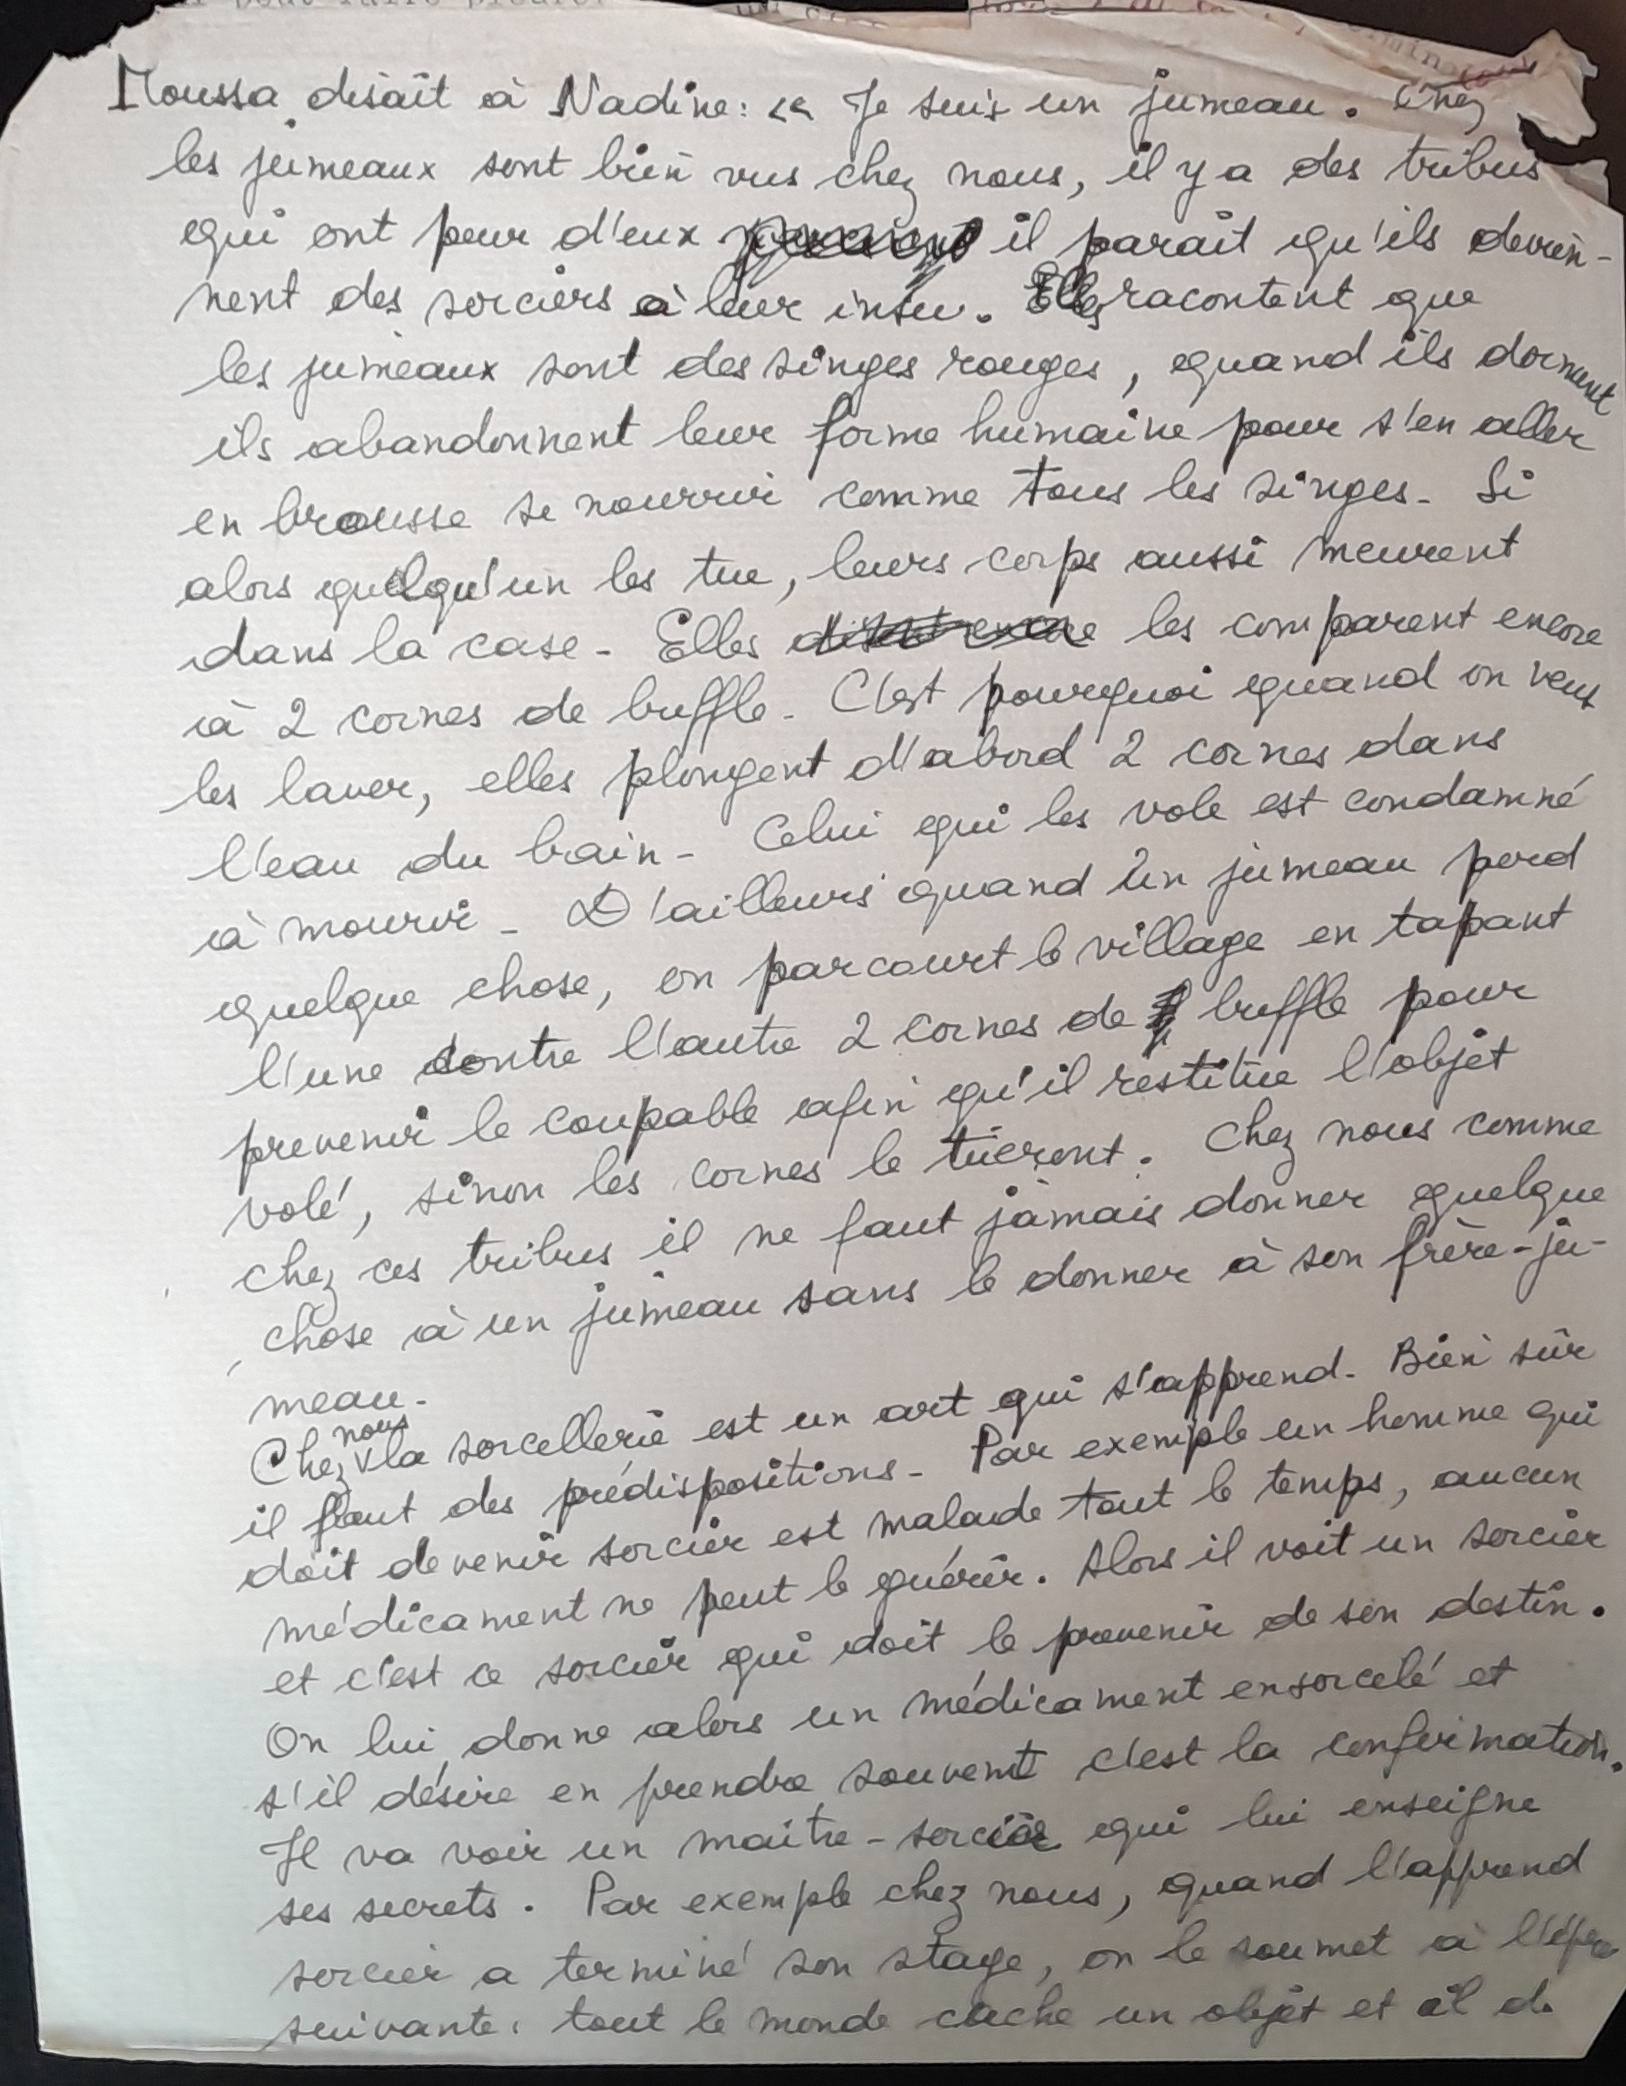 Moussa disait à Nadine: << Je suis un jumeau. Chez
les jumeaux sont bien vus chez nous, il y a des tribus
qui ont peur d'eux il parait qu'ils devien-
nent des sorciers à leur insu. Elles racontent que
les jumeaux sont des singes rouges, quand ils dorment
ils abandonnent leur forme humaine pour s'en aller
en brousse se nourrir comme tous les singes. Si
alors quelqu'un les tue, leurs corps aussi meurent
dans la case. Elles disent encore les comparent encore
à 2 cornes de buffle. C'est pourquoi quand on veut
les laver, elles plongent d'abord 2 cornes dans
l'eau du bain. Celui qui les vole est condamné
à mourir. D'ailleurs quand un jumeau perd
quelque chose, on parcourt le village en tapant
l'une contre l'autre 2 cornes de buffle pour
prevenir le coupable afin qu'il restitue l'objet
volé, sinon les cornes le tueront. Chez nous comme
chez ces tribus il ne faut jamais donner quelque
chose à un jumeau sans le donner à son frère-ju-
meau.
Chez nous la sorcellerie est un art qui s'apprend. Bien sûr
il faut des prédispositions. Par exemple un homme qui
doit devenir sorcier est malade tout le temps, aucun
médicament ne peut le guérir. Alors il voit un sorcier
et c'est ce sorcier qui doit le prevenir de son destin.
On lui donne alors un médicament ensorcelé et
s'il désire en prendre souvent c'est la confirmation.
Il va voir un maitre-sorcier qui lui enseigne
ses secrets. Par exemple chez nous, quand l'apprend
sorcier a terminé son stage, on le soumet à
suivante: tout le monde cache un objet et il